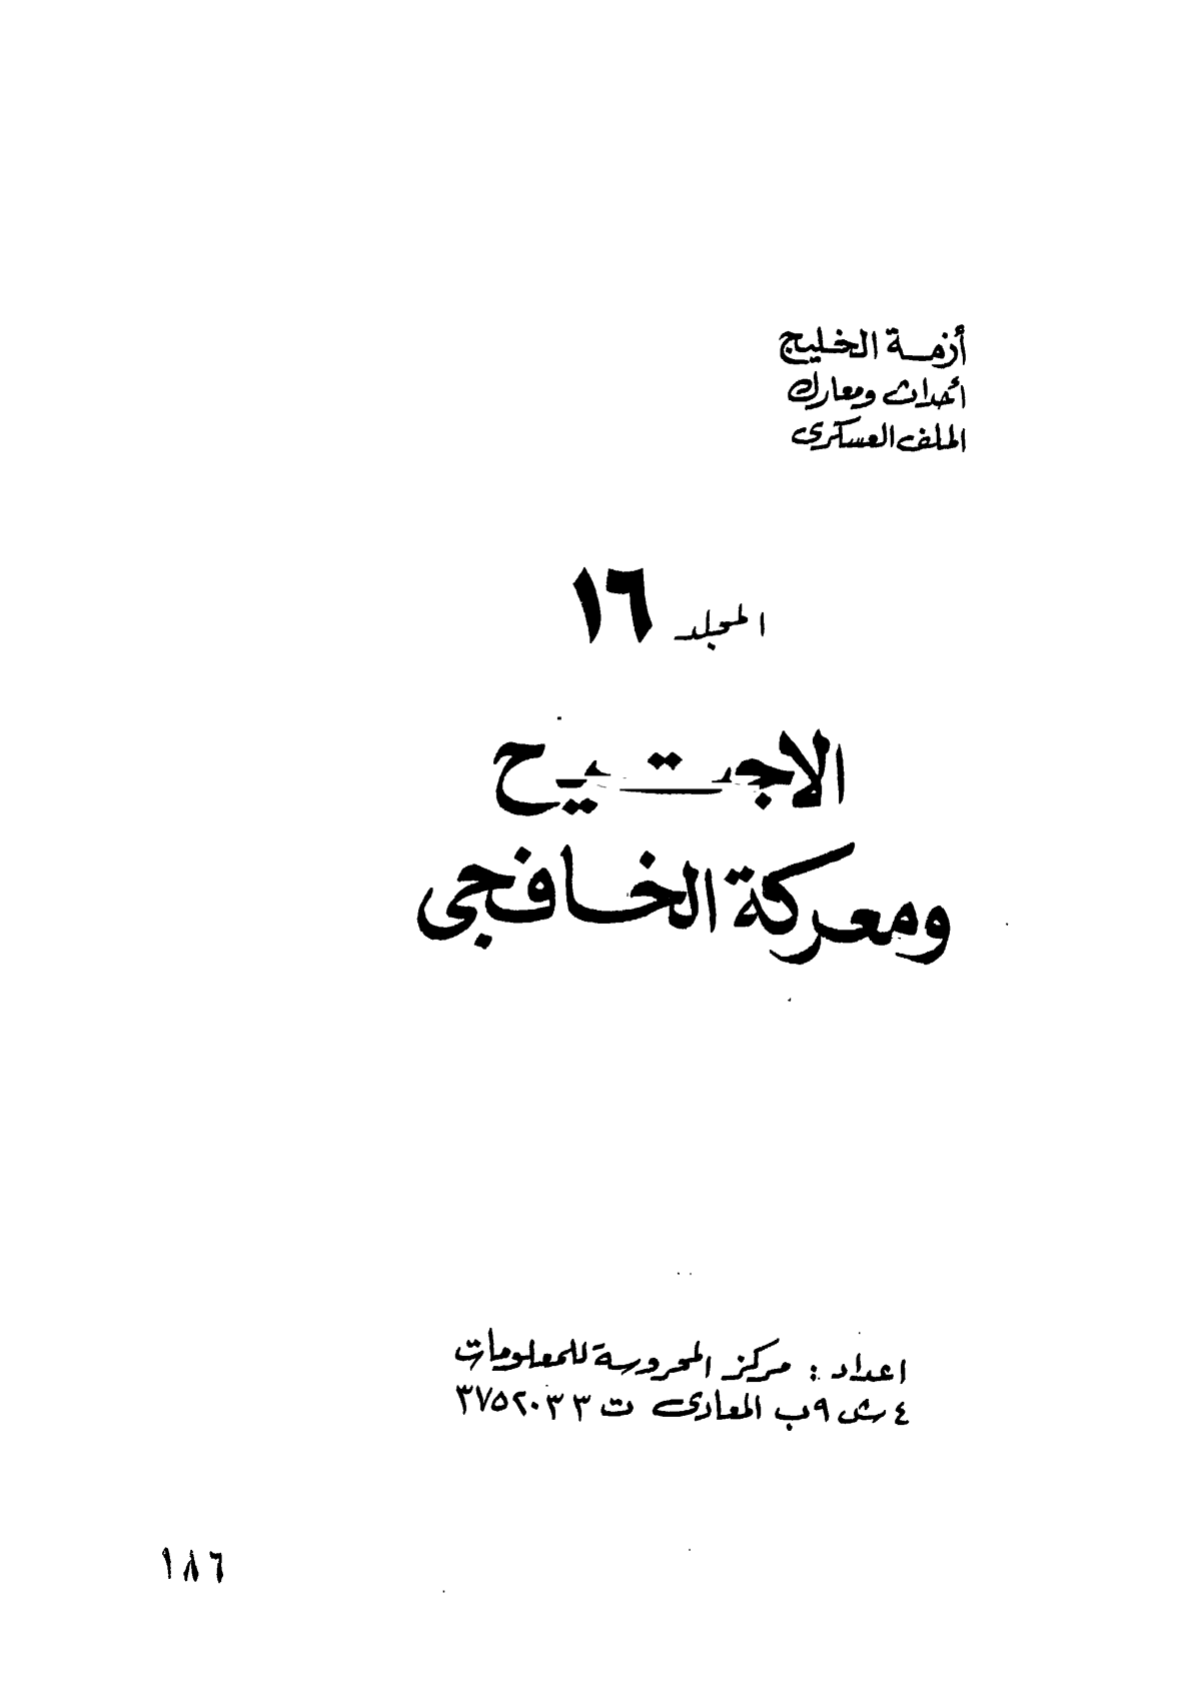 أزمة الخليج
أحداث ومعارك
الملف العسكرى
المجلد ١٦
الاجتيح
ومعركة الخافجى
اعداد : مركز المحروسة للمعلومات
٤ ش ٩ب المعادى ت ٣٧٥٢٠٣٣
١٨٦